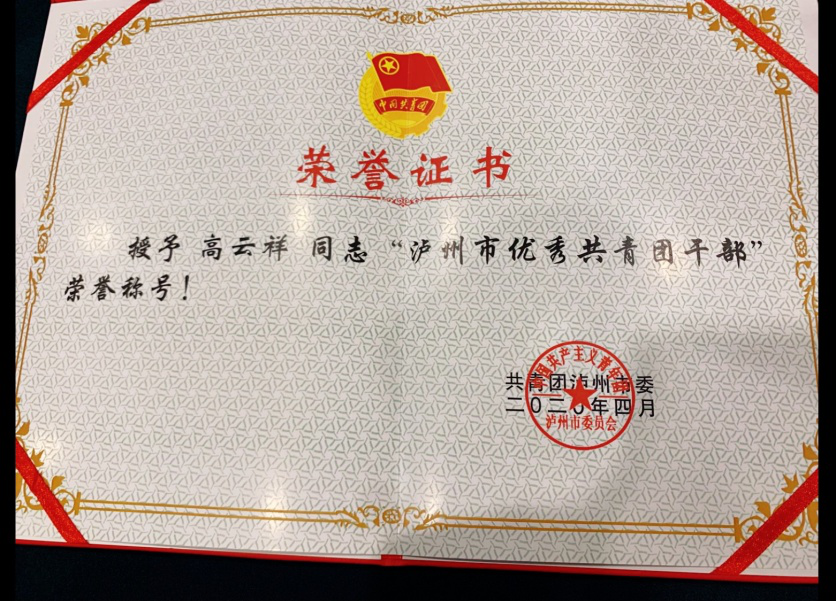 中国共青团
荣誉证书
授予 高云祥 同志“泸州市优秀共青团干部”
荣誉称号！
共青团泸州市委
二〇二〇年四月
中国共产主义青年团
泸州市委员会